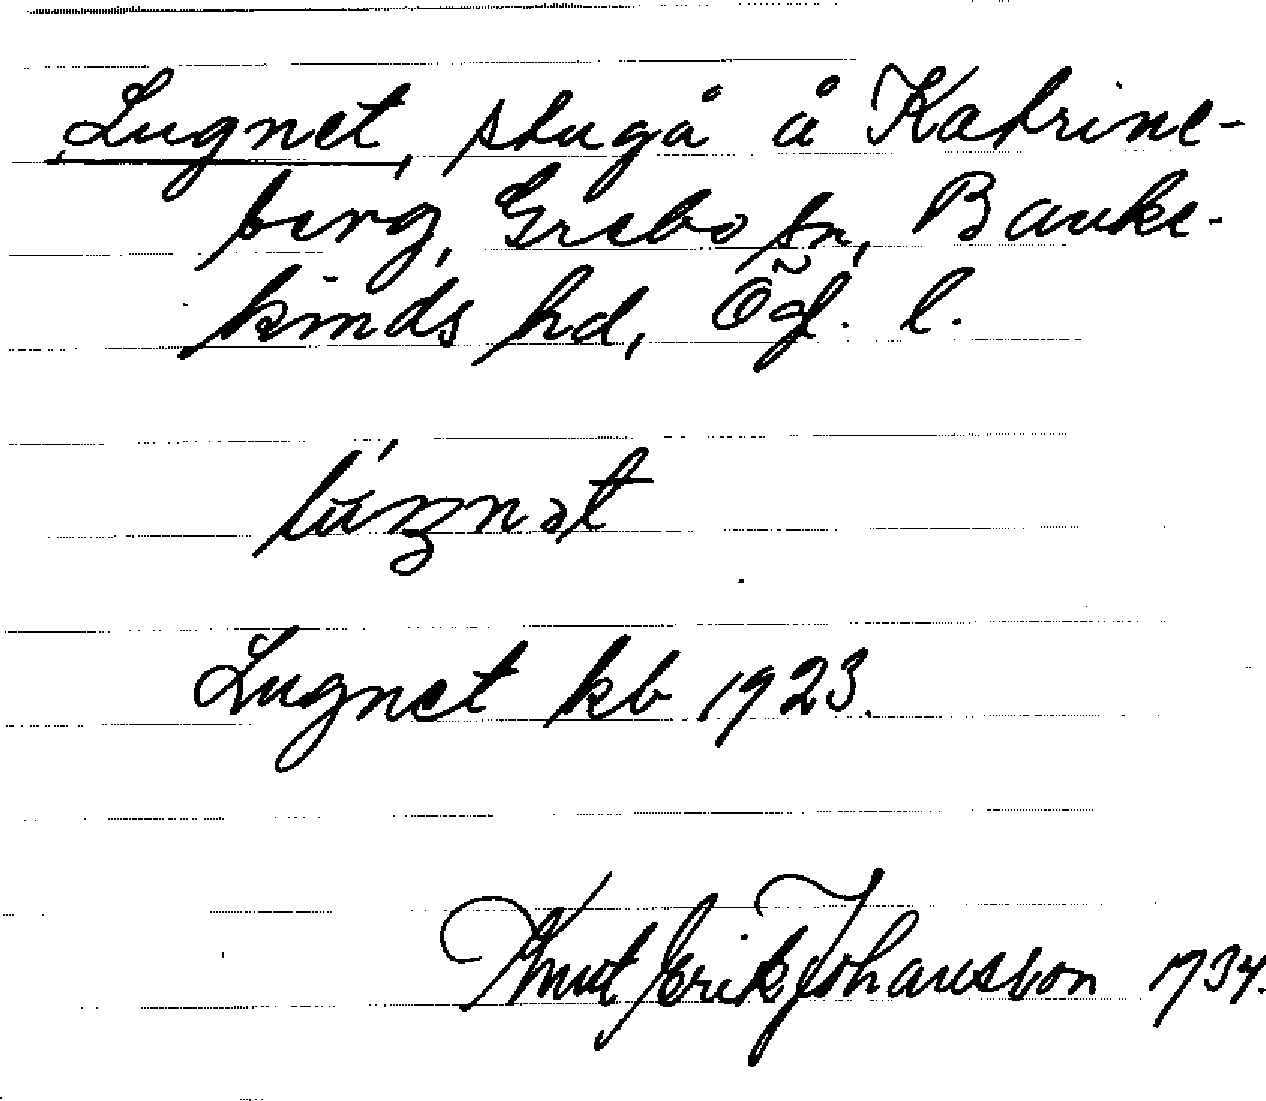 Lugnet, stuga å Katrine-
berg, Grebo sn, Banke-
kinds hd, Ögl. l.
Lugnet kb 1923.
Knut Erik Johansson 1934.